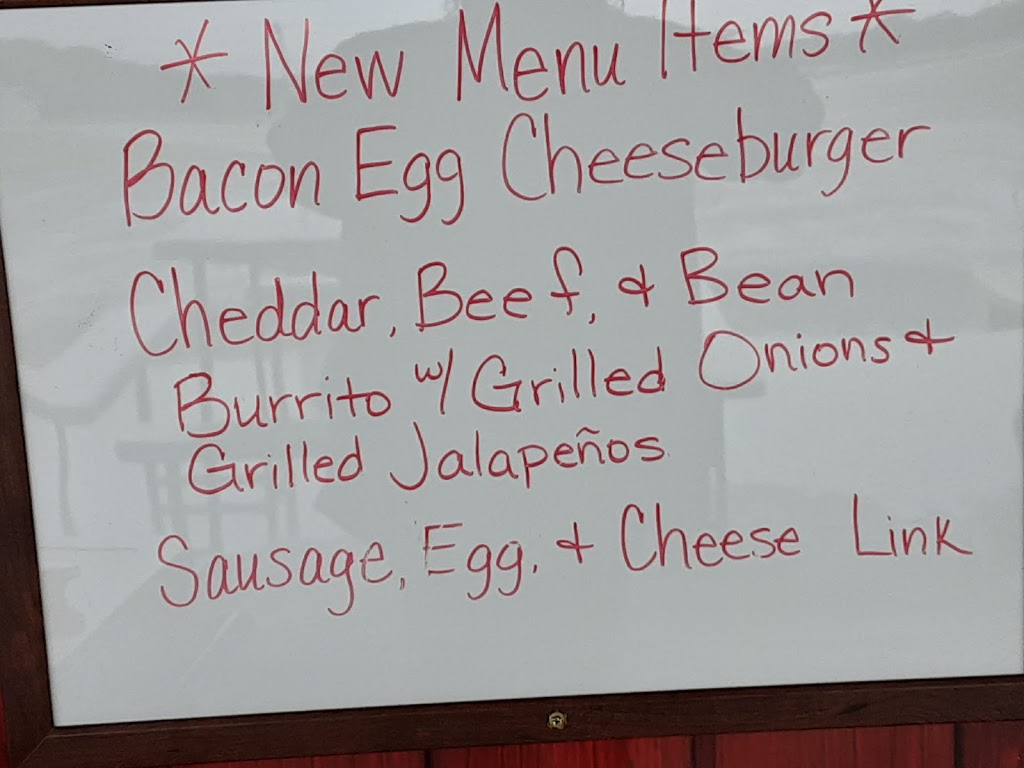 * New Menu Items *
Bacon Egg Cheeseburger
Cheddar, Beef, & Bean
Burrito w/ Grilled Onions &
Grilled Jalapeños
Sausage, Egg, & Cheese Link